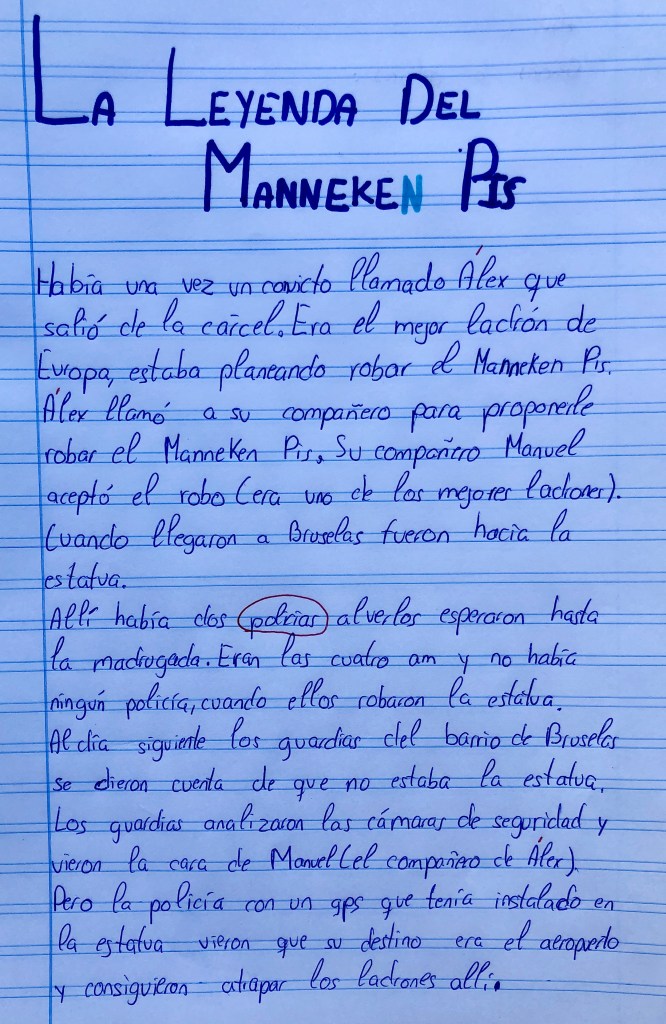 LA LEYENDA DEL
MANNEKEN PIS
Había una vez un convicto llamado Álex que
salió de la cárcel. Era el mejor ladrón de
Europa, estaba planeando robar el Manneken Pis.
Álex llamó a su compañero para proponerle
robar el Manneken Pis. Su compañero Manuel
aceptó el robo (era uno de los mejores ladrones).
Cuando llegaron a Bruselas fueron hacia la
estatua.
Allí había dos polcias al verlos esperaron hasta
la madrugada. Eran las cuatro am y no había
ningún policía, cuando ellos robaron la estatua.
Al día siguiente los guardias del barrio de Bruselas
se dieron cuenta de que no estaba la estatua.
Los guardias analizaron las cámaras de seguridad y
vieron la cara de Manuel (el compañero de Álex).
Pero la policía con un gps que tenía instalado en
la estatua vieron que su destino era el aeropuerto
y consiguieron atrapar los ladrones allí.